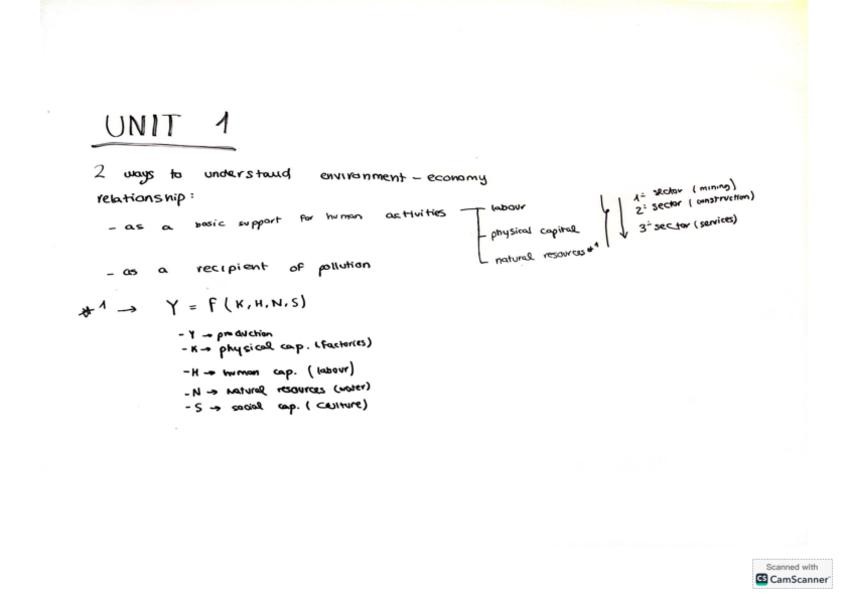 UNIT 1
2 ways to understand environment - economy
relationship:
- as a basic support for human activities
labour
physical capital
natural resources *1
1ª sector (mining)
2ª sector (construction)
3ª sector (services)
- as a recipient of pollution
*1 → Y = F(K, H, N, S)
- Y → production
- K → physical cap. (factories)
- H → human cap. (labour)
- N → natural resources (water)
- S → social cap. (culture)
Scanned with
CS CamScanner